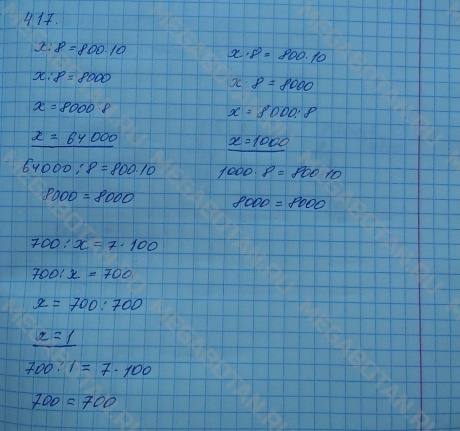 417.
x:8=800·10
x:8=8000
x=8000·8
x=64000
64000:8=800·10
8000=8000
x·8=800·10
x·8=8000
x=8000:8
x=1000
1000·8=800·10
8000=8000
700:x=7·100
700:x=700
x=700:700
x=1
700:1=7·100
700=700
MEGABOTAN.RU